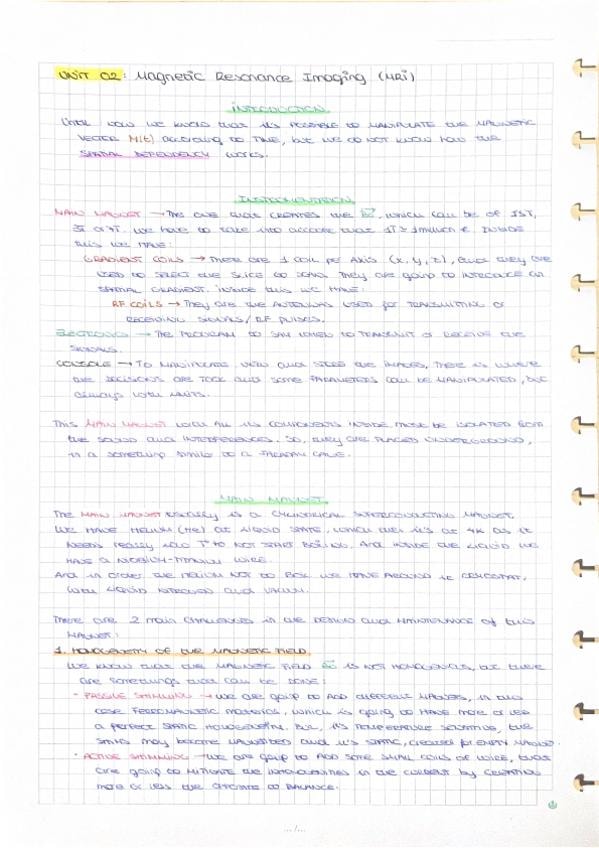 UNIT 02: Magnetic Resonance Imaging (MRI)
INTRODUCTION
Until now we know that it's possible to manipulate the magnetic
vector M(t) according to time, but we do not know how the
spatial dependency works.
INSTRUMENTATION
MAIN MAGNET → The one that creates the B0, which can be of 1.5T,
3T or 7T. We have to take into account that 1T ≥ 1 million €. Inside
this we have:
GRADIENT COILS → There are 1 coil per axis (x, y, z), and they are
used to select the slice to scan. They are going to introduce a
spatial gradient. Inside this we have:
RF COILS → They are the antennas used for transmitting or
receiving signals / RF pulses.
ELECTRONICS → The program to say when to transmit or receive the
signals.
CONSOLE → To manipulate, view and store the images, there is where
the decisions are took and some parameters can be manipulated, but
always with limits.
This MAIN MAGNET with all its components inside must be isolated from
the sound and interferences. So, they are placed underground,
in a something similar to a Faraday cage.
MAIN MAGNET
The MAIN MAGNET usually is a cylindrical superconducting magnet.
We have Helium (He) at liquid state, which it's at 4K as it
needs really low Tª to not start boiling. And inside the liquid we
have a niobium-titanium wire.
And in order the helium not to boil we have around a cryostat,
with liquid nitrogen and vacuum.
There are 2 main challenges in the design and maintenance of this
magnet:
1. HOMOGENEITY OF THE MAGNETIC FIELD.
We know that the magnetic field B0 is not homogeneous, but there
are somethings that can be done:
· PASSIVE SHIMMING → We are going to add different magnets, in this
case ferromagnetic material, which is going to have more or less
a perfect static homogeneity. But, it's temperature sensitive, the
shims may become magnetized and it's static, created for empty magnet.
· ACTIVE SHIMMING → We are going to add some small coils of wire, that
are going to mitigate the inhomogeneities in the current by creating
more or less the opposite to balance.
.../...